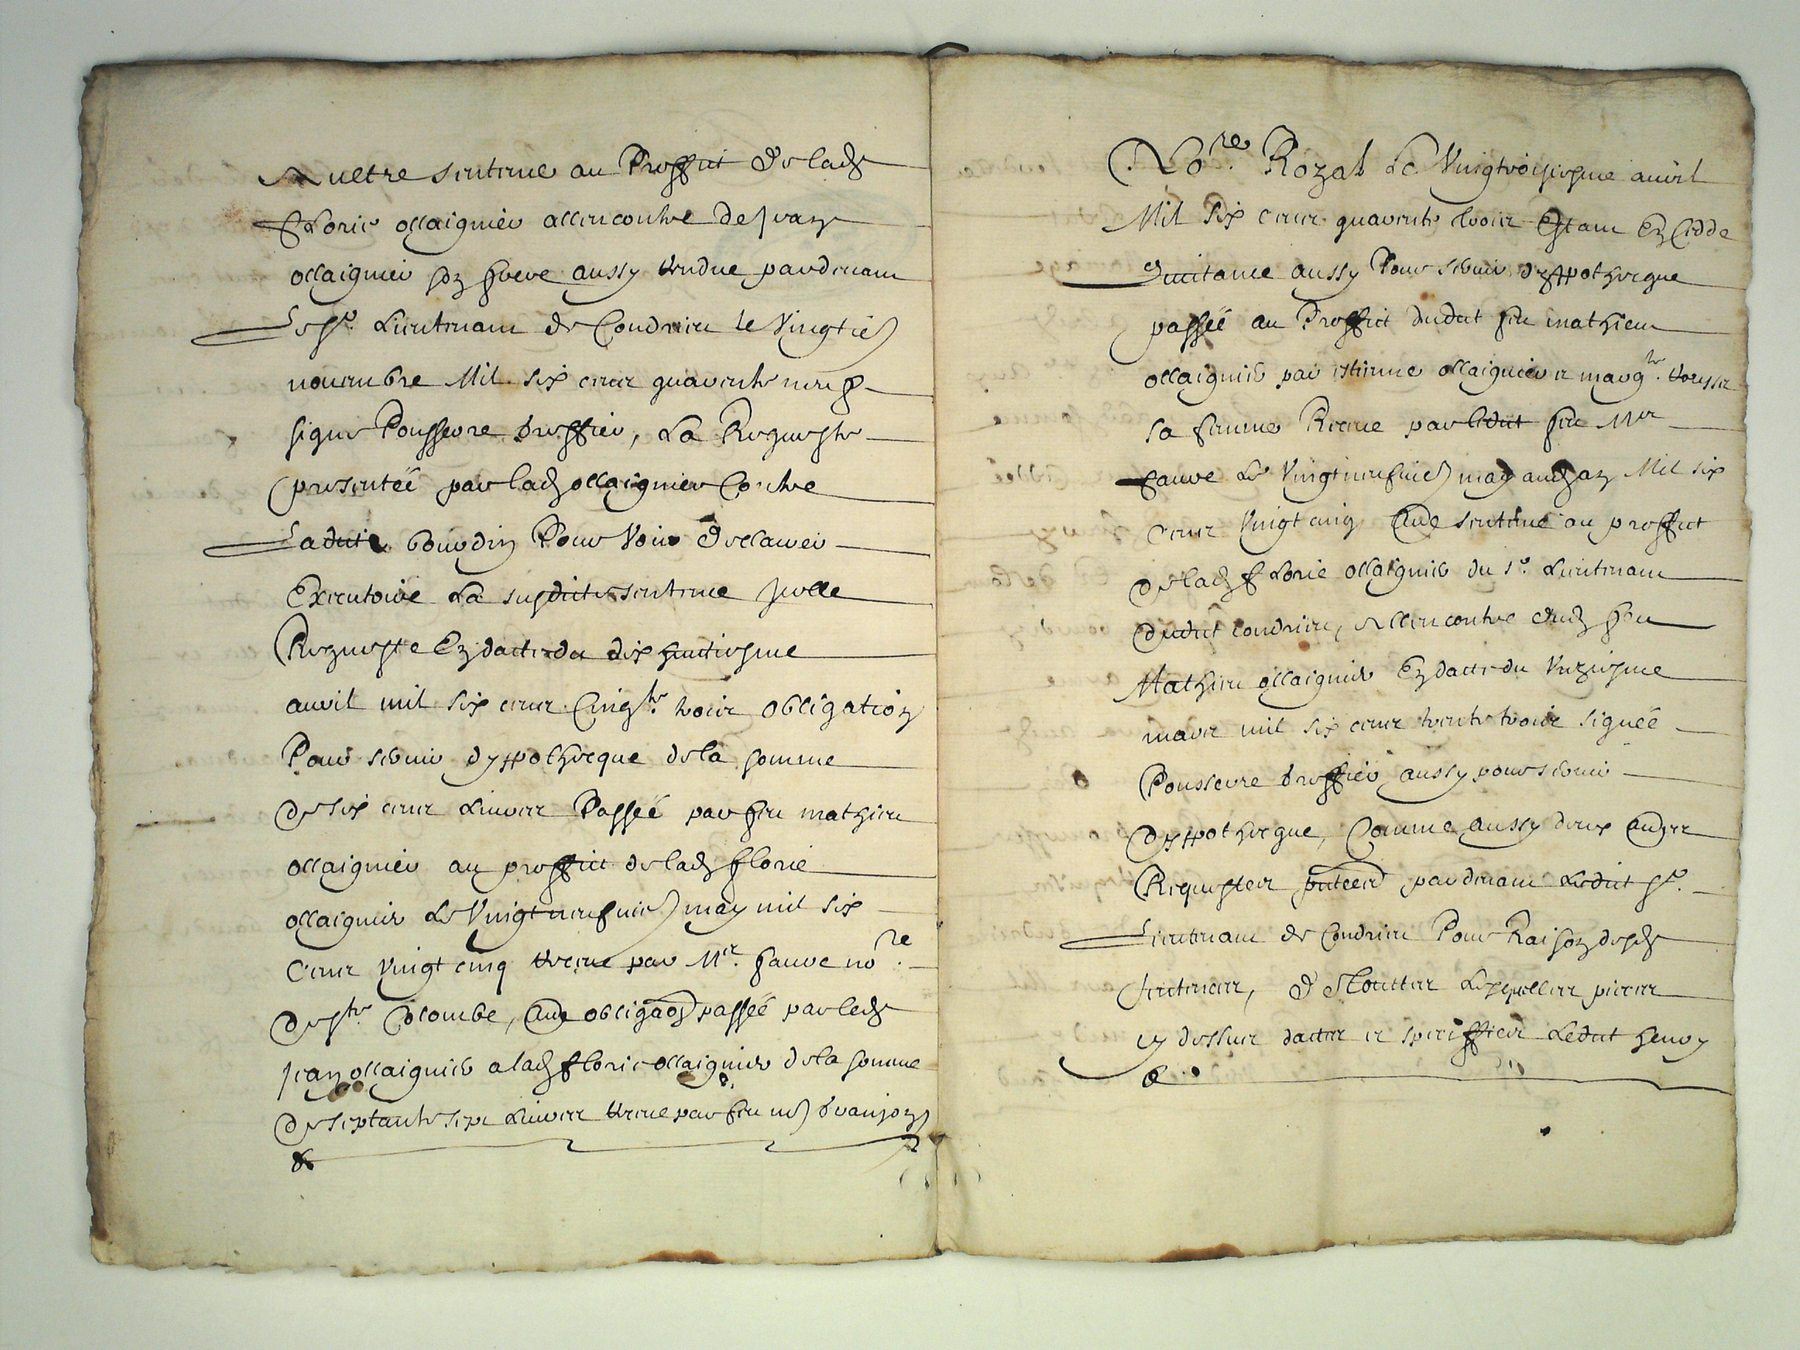 Aultre sentence au Proffict de lad
Florie ollaignier allencontre de Jean
ollaignier son frere aussy rendue pardevant
Led sr. Lieutenant de Condrieu le Vingtie
novembre Mil six cent quarente neuf
signe Pousseure greffier, La Requeste
presentée par lad ollaignier Contre
Ladicte bourdin Pour Voir declairer
Executoire La susdicte sentence Icelle
Requeste En datte du dix huictiesme
avril mil six cent Cinqte. trois obligation
Pour servir d'yppothecque de la somme
de six cent Livres Passée par feu mathieu
ollaignier au proffict de lad florie
ollaignier Le Vingt neufvie may mil six
Cent vingt cinq receue par Mer. faure nore.
de ste. Colombe, Aue obligaon passée par led
jean ollaignier a lad florie ollaignier de la somme
de septante sept Livres receue par feu me granjon
&
Nore. Royal Le Vingtroisiesme avril
Mil six cent quarente trois Estant En Cedde
Quitance aussy Pour servir d'yppothecque
passée au Proffict dudict feu mathieu
ollaignier par estienne ollaignier et margte.
sa femme Receue par ledict feu Mer
faure Le Vingt neufvie may aud an Mil six
Cent Vingt cinq Aue sentence au proffict
de lad florie ollaignier du sr. Lieutenant
dudict Condrieu, allencontre dud feu
Mathieu ollaignier En datte du Unziesme
mars mil six cent trente trois signée
Pousseure greffier aussy pour servir
d'yppothecque, Comme aussy deux Auxes
Requestes pntées pardevant Ledict sr.
Lieutenant de Condrieu Pour Raison desd
sentences, & de touttes Lesquelles pieces
cy dessus dattes et speciffiees Ledict henry
&